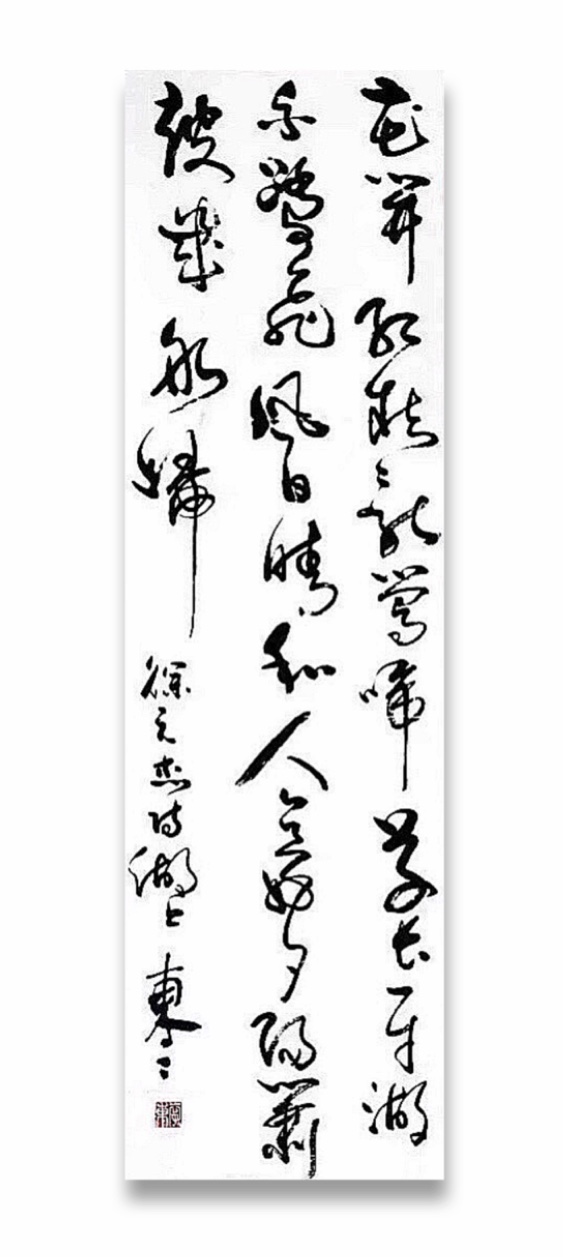 花開紅樹亂鶯啼草長平湖
白鷺飛風日晴和人意好夕陽簫
鼓幾船歸 徐元杰詩湖上 東